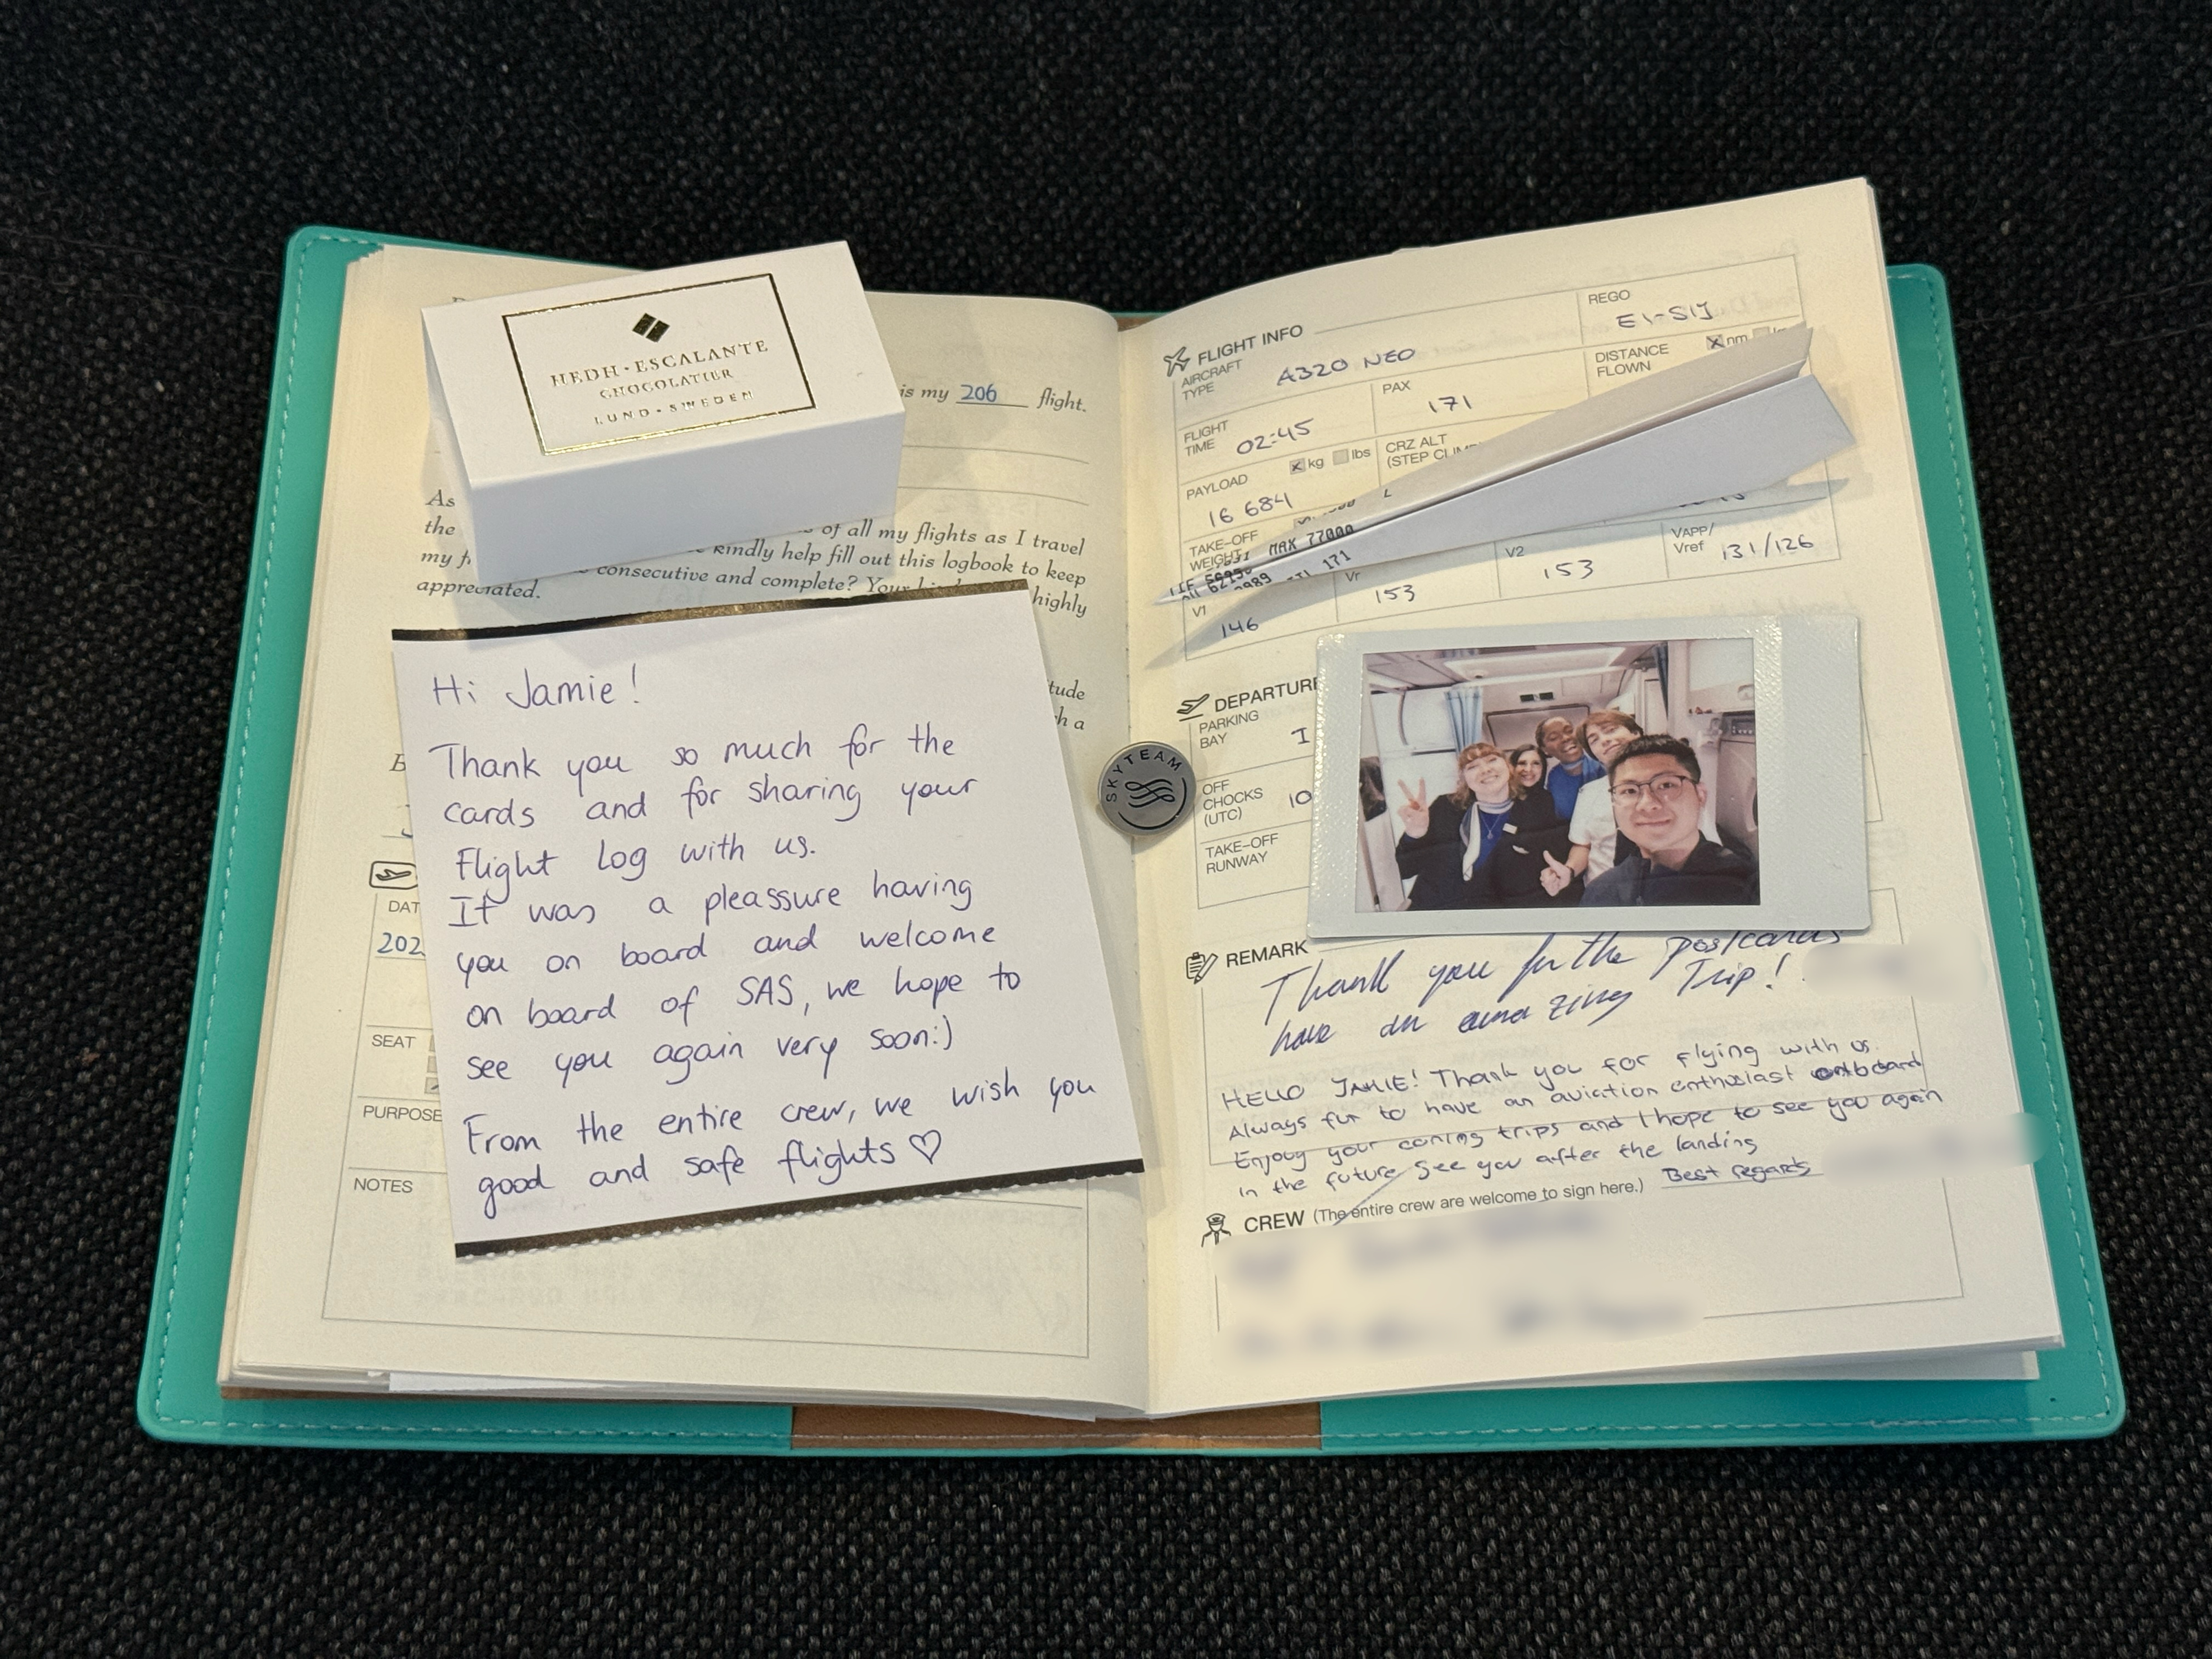 HEDH · ESCALANTE
CHOCOLATIER
LUND · SWEDEN
is my 206 flight.
As
the
of all my flights as I travel
my
kindly help fill out this logbook to keep
appreciated.
consecutive and complete? Your
highly
Hi Jamie!
Thank you so much for the
cards and for sharing your
Flight Log with us.
It was a pleassure having
you on board and welcome
on board of SAS, we hope to
see you again very soon:)
From the entire crew, we wish you
good and safe flights ♡
SEAT
PURPOSE
NOTES
SKYTEAM
FLIGHT INFO
AIRCRAFT TYPE
A320 NEO
REGO
EI-SIJ
FLIGHT TIME
02:45
PAX
171
DISTANCE FLOWN
nm
PAYLOAD
kg lbs
16 684
CRZ ALT
TAKE-OFF WEIGHT
MAX 77000
171
V1
146
Vr
153
V2
153
VAPP/
Vref
131/126
DEPARTURE
PARKING BAY
OFF CHOCKS (UTC)
10
TAKE-OFF RUNWAY
REMARK
Thank you for the postcards
have an amazing Trip!
HELLO JAMIE! Thank you for flying with us.
Always fun to have an aviation enthusiast onboard
Enjoy your coming trips and I hope to see you again
in the future. See you after the landing
Best regards
CREW (The entire crew are welcome to sign here.)